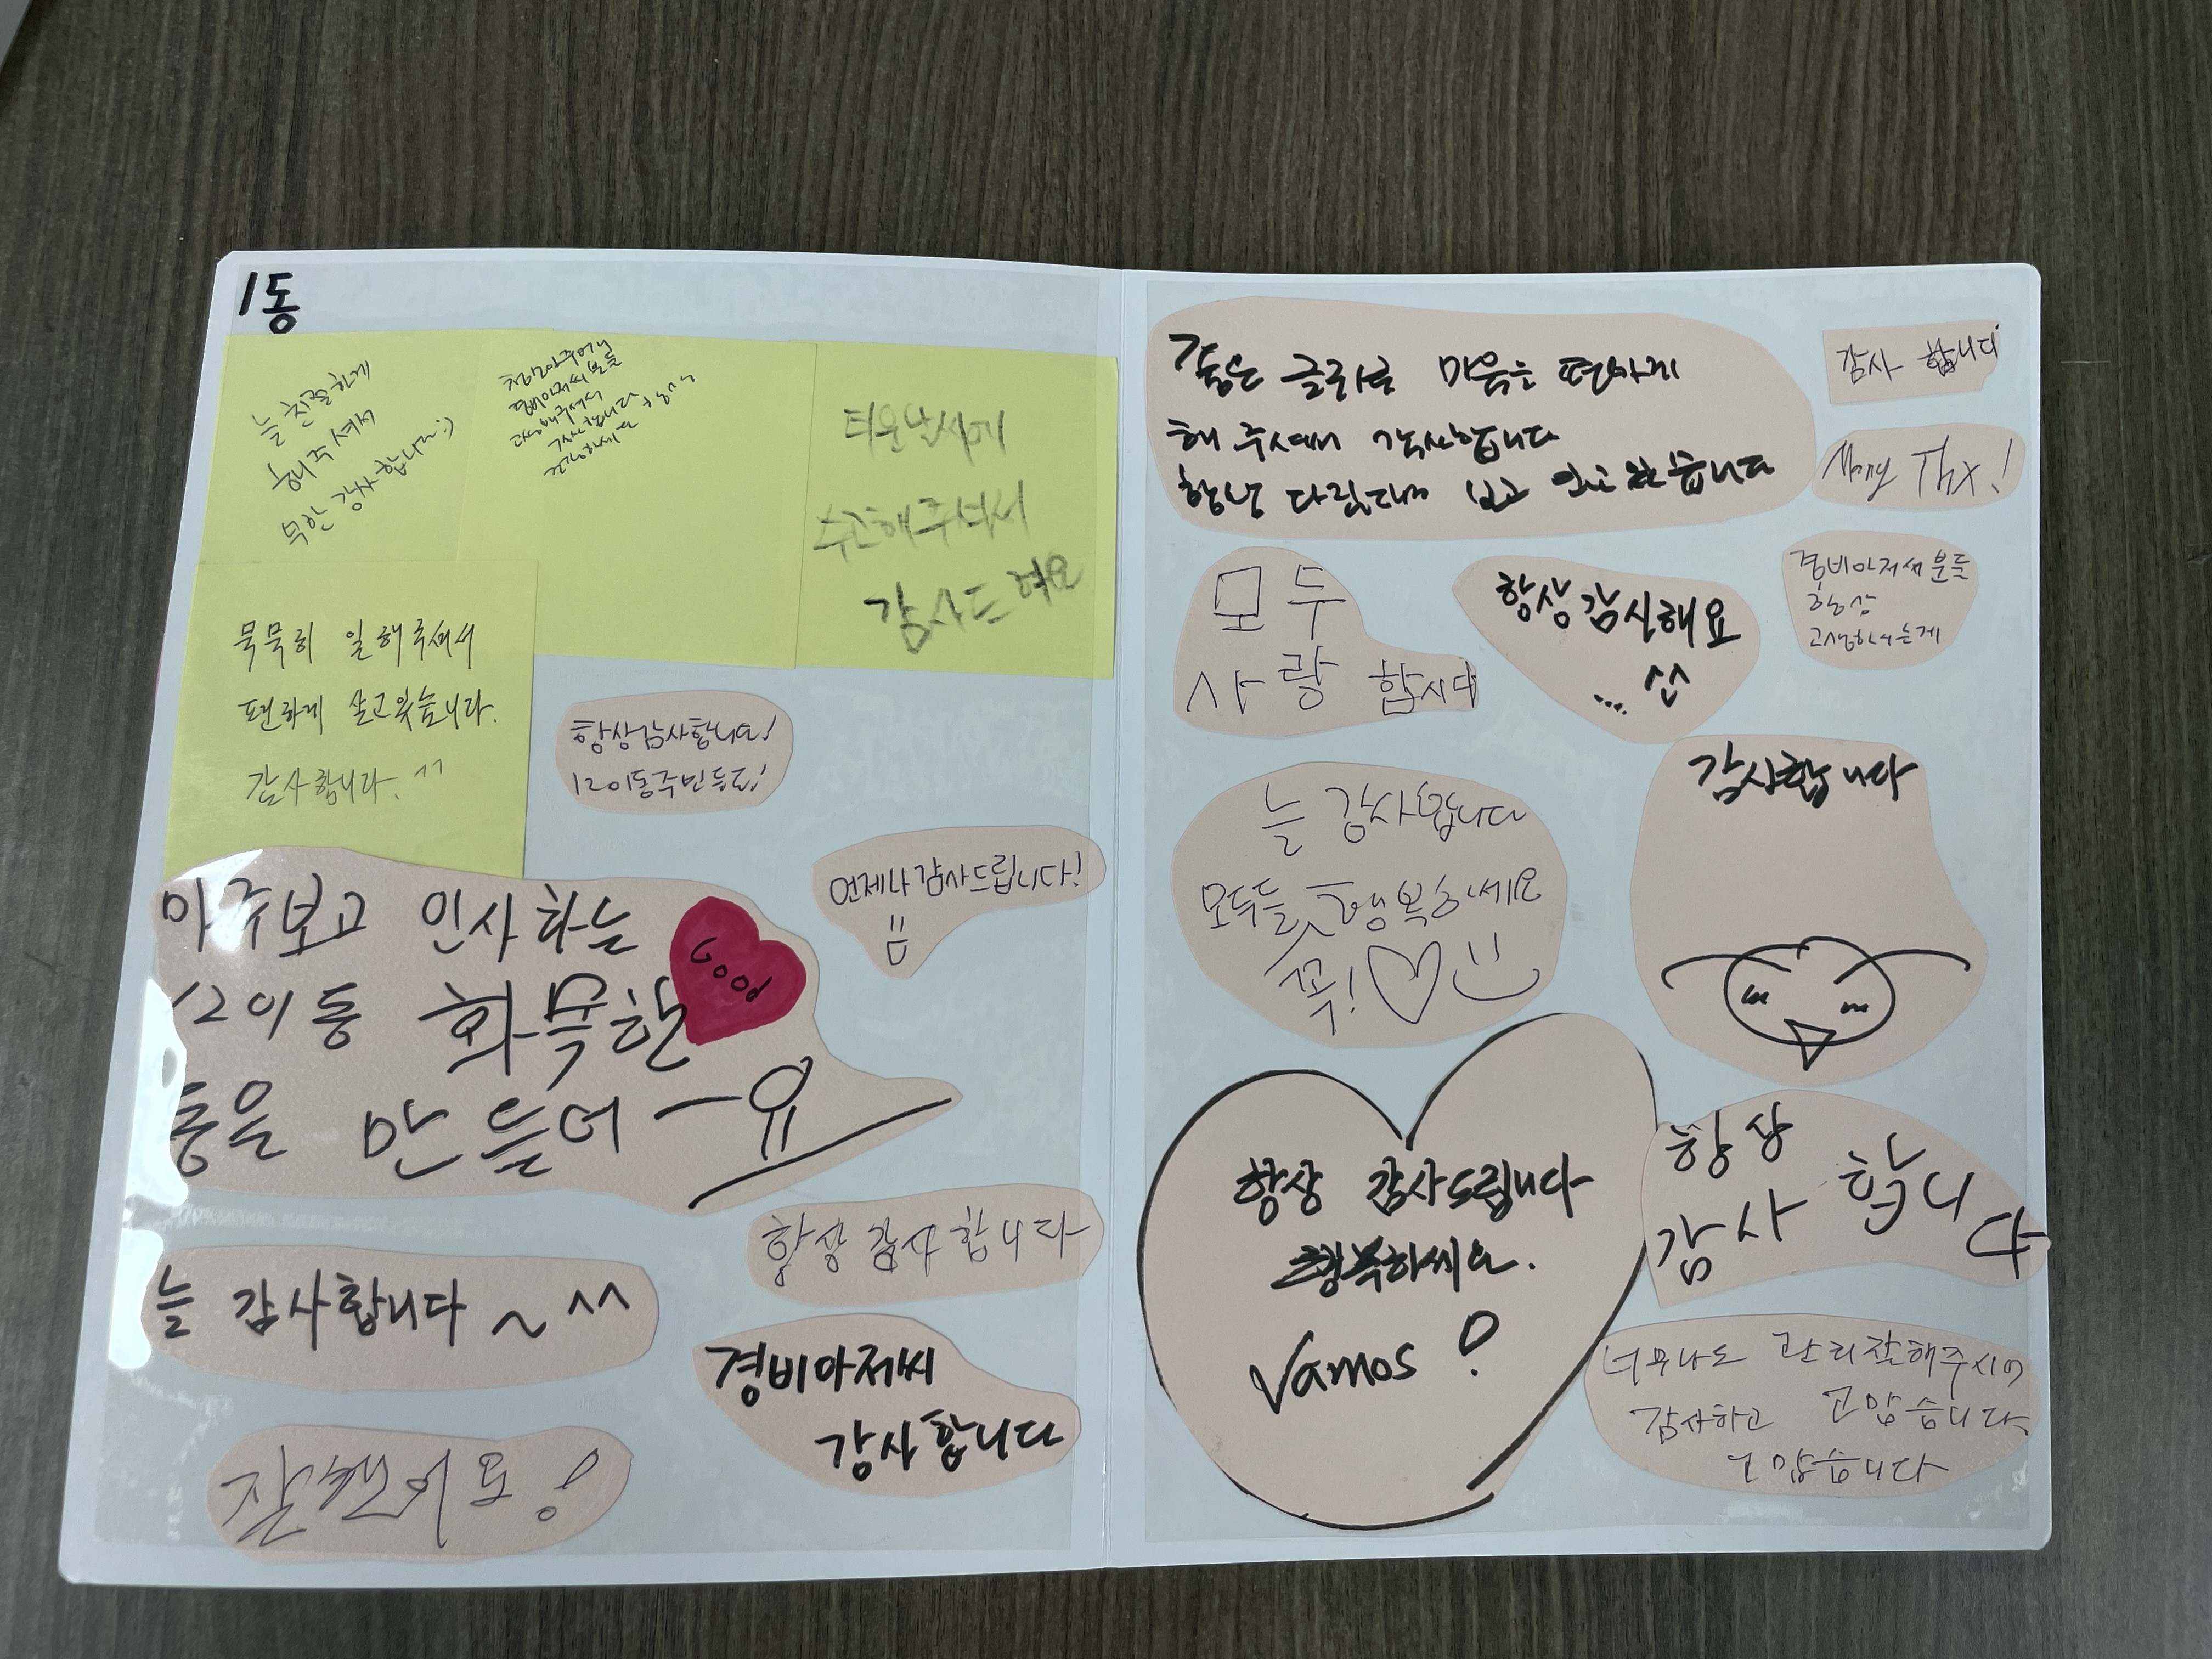 1동
늘 친절하게
해주셔서
무한 감사합니다:)
경비아저씨분들
고생해주셔서
감사합니다 항상
건강하세요
더운날씨에
수고해주셔서
감사드려요
묵묵히 일해주셔서
편하게 살고있습니다.
감사합니다. ^^
항상감사합니다!
1201동주민들도!
언제나감사드립니다!
마주보고 인사하는
1201동 화목한
동을 만들어ー요
Good
늘 감사합니다 ~ ^^
항상 감사합니다
경비아저씨
감사합니다
잘했어요!
좋은 글귀로 마음을 편하게
해 주셔서 감사합니다
항상 보고 있습니다
감사 합니다
Many Thx!
모두
사랑 합시다
항상감사해요
... ^^
경비아저씨분들
항상
늘 감사합니다
모두들 행복하세요
꼭!
감사합니다
항상 감사드립니다
행복하세요.
Vamos !
항상
감사 합니다
너무나도 관리잘해주시어
감사하고 고맙습니다
고맙습니다